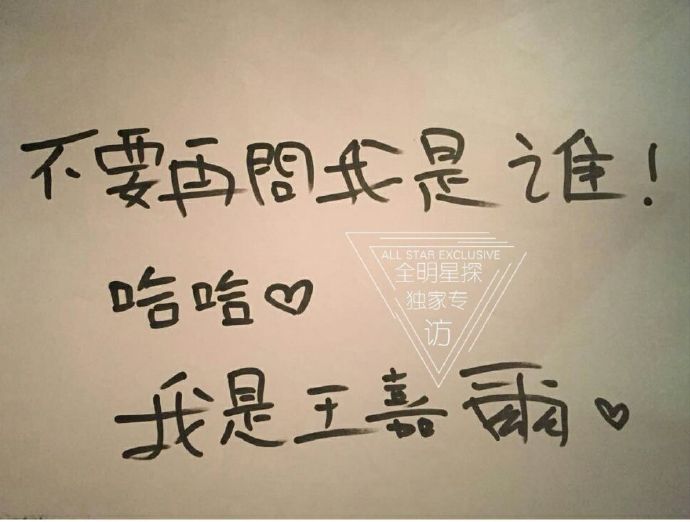 不要再問我是谁！
哈哈♡
我是王嘉爾♡
ALL STAR EXCLUSIVE
全明星探
独家专
访